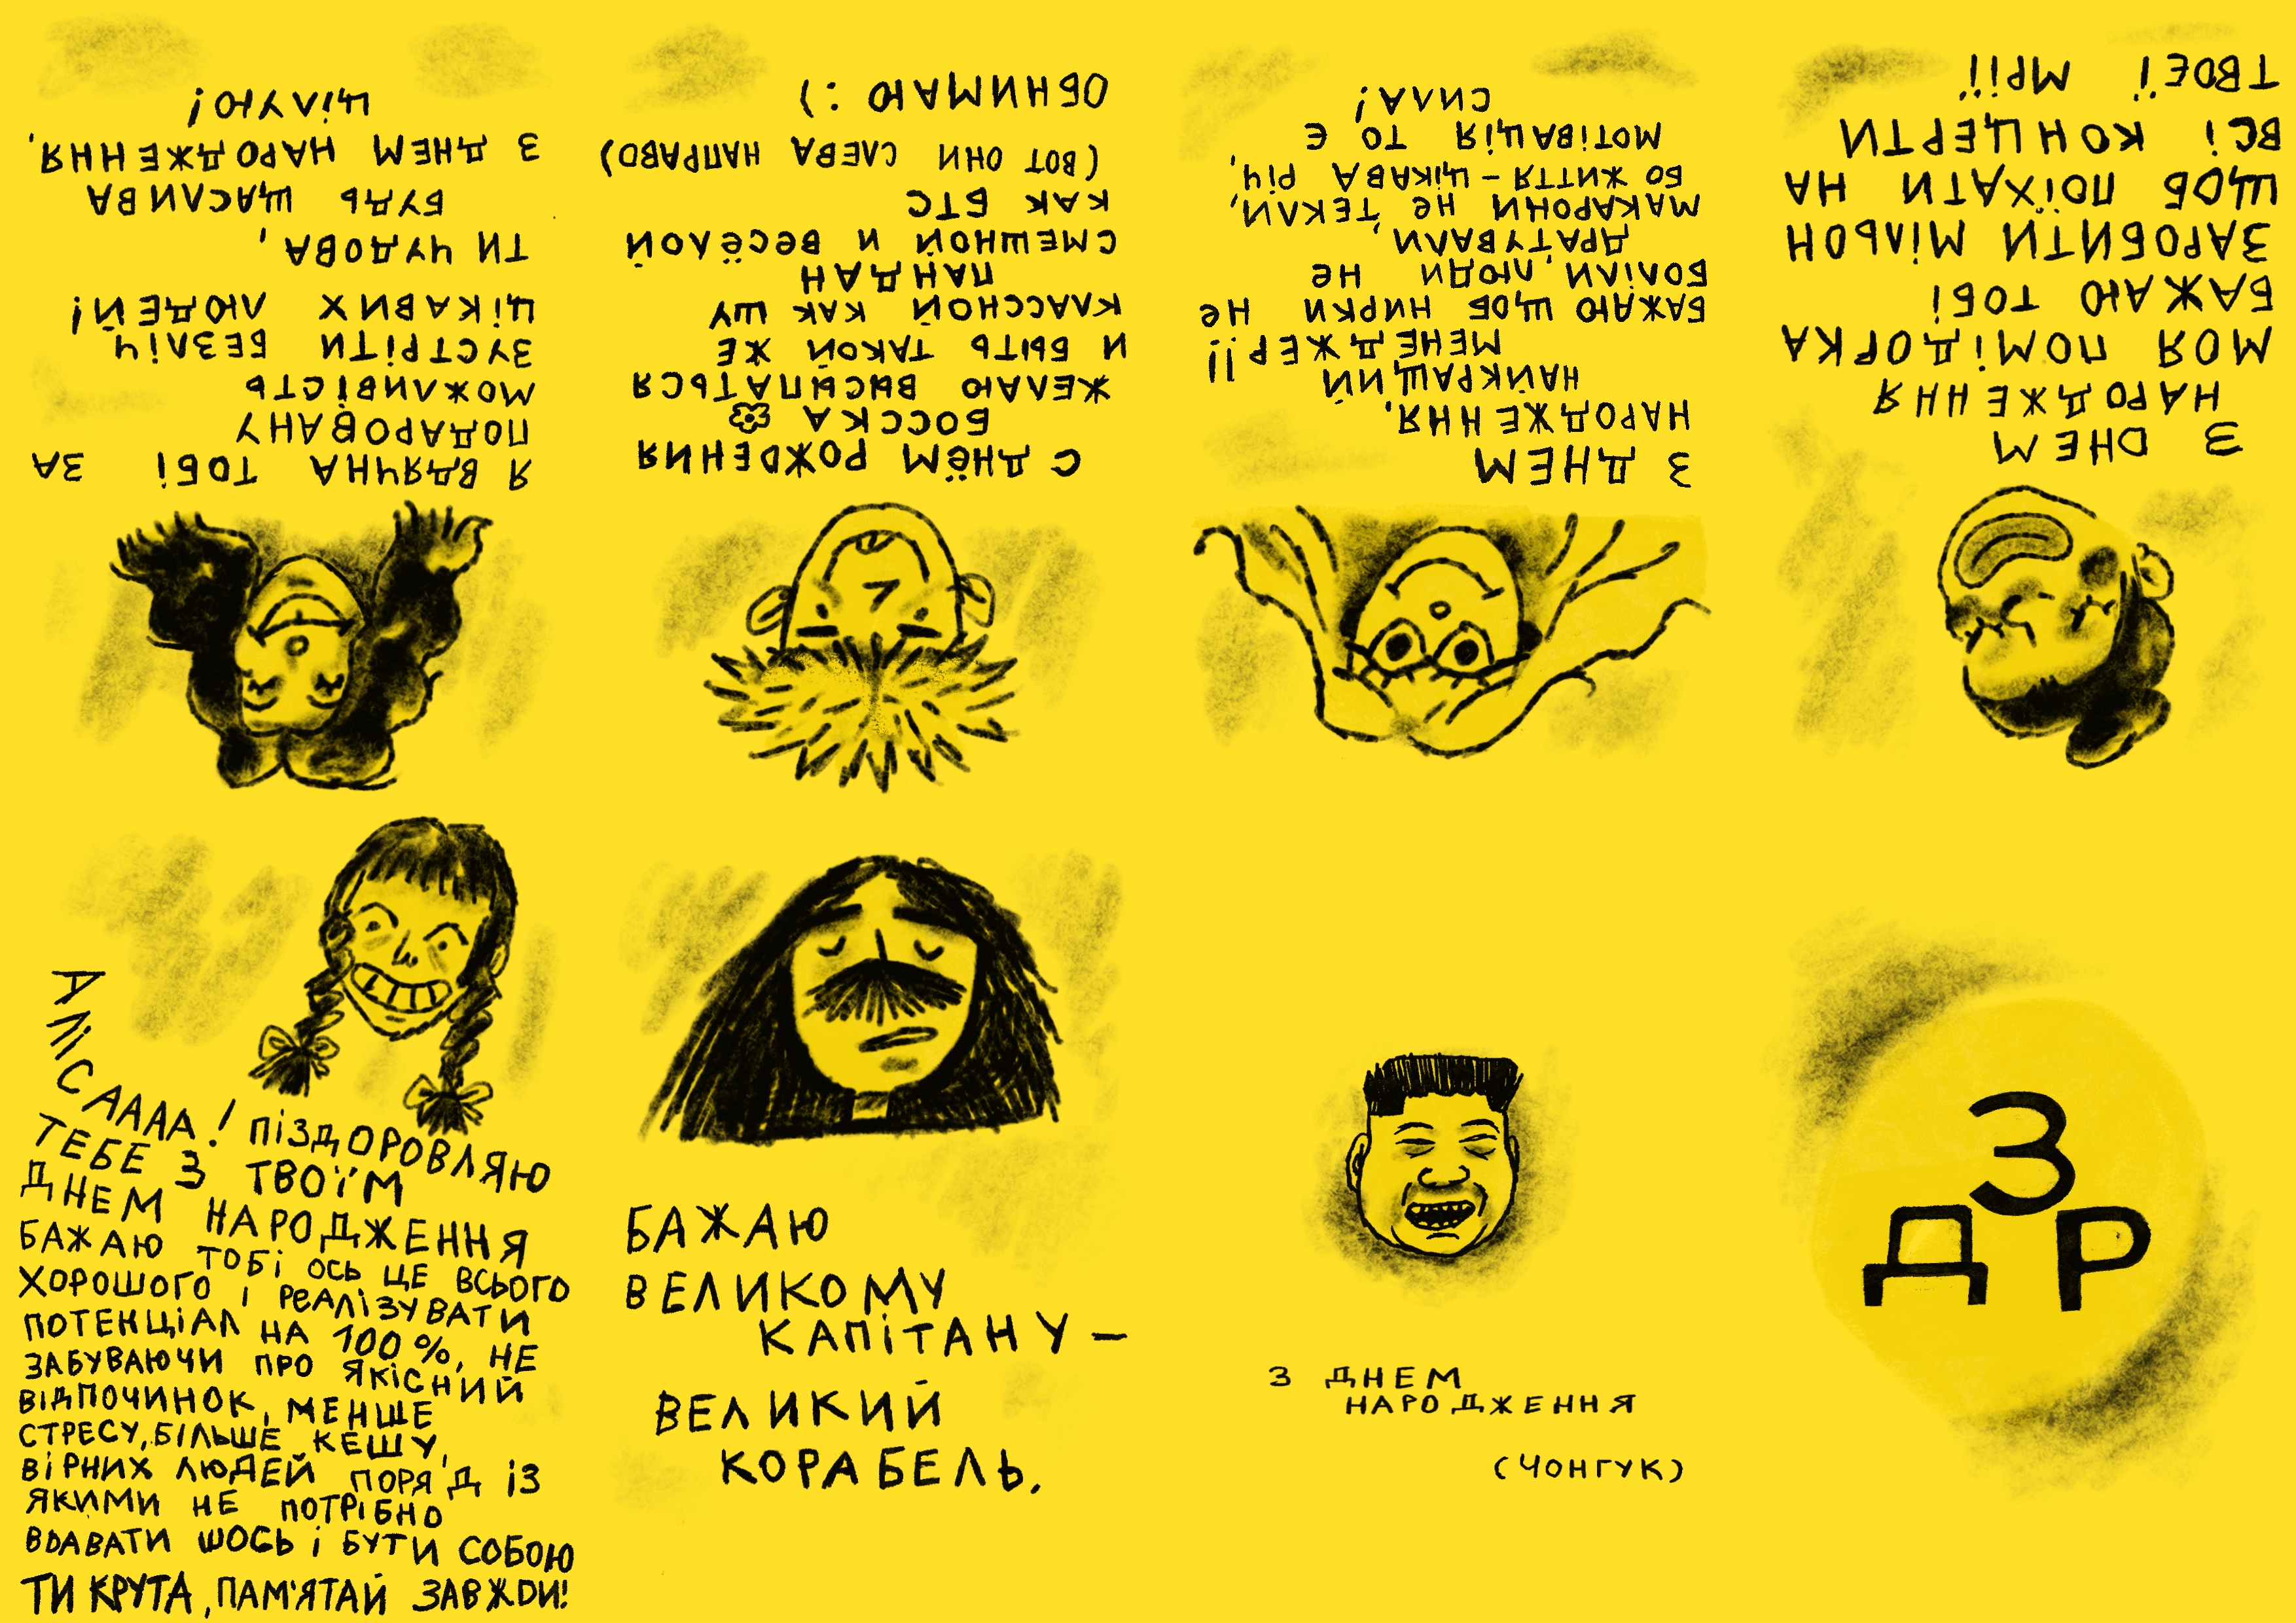 Я ВДЯЧНА ТОБІ ЗА
ПОДАРОВАНУ
МОЖЛИВІСТЬ
ЗУСТРІТИ БЕЗЛІЧ
ЦІКАВИХ ЛЮДЕЙ!
ТИ ЧУДОВА,
БУДЬ ЩАСЛИВА
З ДНЕМ НАРОДЖЕННЯ,
ЦІЛУЮ!
С ДНЁМ РОЖДЕНИЯ
БОССКА
ЖЕЛАЮ ВЫСЫПАТЬСЯ
И БЫТЬ ТАКОЙ ЖЕ
КЛАССНОЙ КАК ШУ
ПАНДАН
СМЕШНОЙ И ВЕСЁЛОЙ
КАК БТС
(ВОТ ОНИ СЛЕВА НАПРАВО)
ОБНИМАЮ :)
З ДНЕМ
НАРОДЖЕННЯ,
НАЙКРАЩИЙ
МЕНЕДЖЕР!!
БАЖАЮ ЩОБ НИРКИ НЕ
БОЛІЛИ, ЛЮДИ НЕ
ДРАТУВАЛИ,
МАКАРОНИ НЕ ТЕКЛИ,
БО ЖИТТЯ – ЦІКАВА РІЧ,
МОТІВАЦІЯ ТО Є
СИЛА!
З DНЕМ
НАРОДЖЕННЯ
МОЯ ПОМІДОРКА
БАЖАЮ ТОБІ
ЗАРОБИТИ МІЛЬОН
ЩОБ ПОЇХАТИ НА
ВСІ КОНЦЕРТИ
ТВОЄЇ МРІЇ
АЛІСАААА! ПІЗДОРОВЛЯЮ
ТЕБЕ З ТВОЇМ
ДНЕМ НАРОДЖЕННЯ
БАЖАЮ ТОБІ ОСЬ ЦЕ ВСЬОГО
ХОРОШОГО І РЕАЛІЗУВАТИ
ПОТЕНЦІАЛ НА 100%, НЕ
ЗАБУВАЮЧИ ПРО ЯКІСНИЙ
ВІДПОЧИНОК, МЕНШЕ
СТРЕСУ, БІЛЬШЕ КЕШУ,
ВІРНИХ ЛЮДЕЙ ПОРЯД ІЗ
ЯКИМИ НЕ ПОТРІБНО
ВDАВАТИ ШОСЬ І БУТИ СОБОЮ
ТИ КРУТА, ПАМ'ЯТАЙ ЗАВЖDИ!
БАЖАЮ
ВЕЛИКОМУ
КАПІТАНУ –
ВЕЛИКИЙ
КОРАБЕЛЬ.
З ДНЕМ
НАРОДЖЕННЯ
(ЧОНГУК)
З
ДР